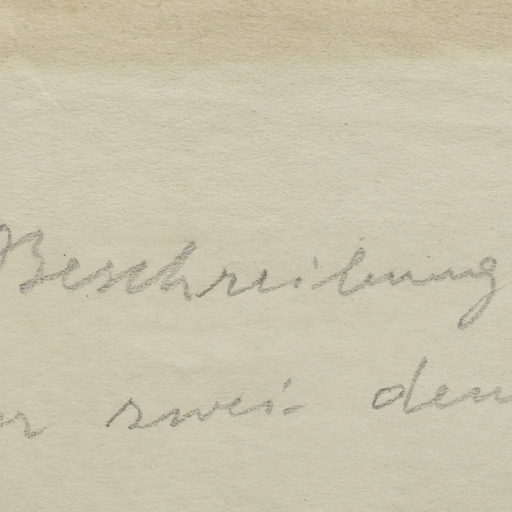 Beschreibung
zwei